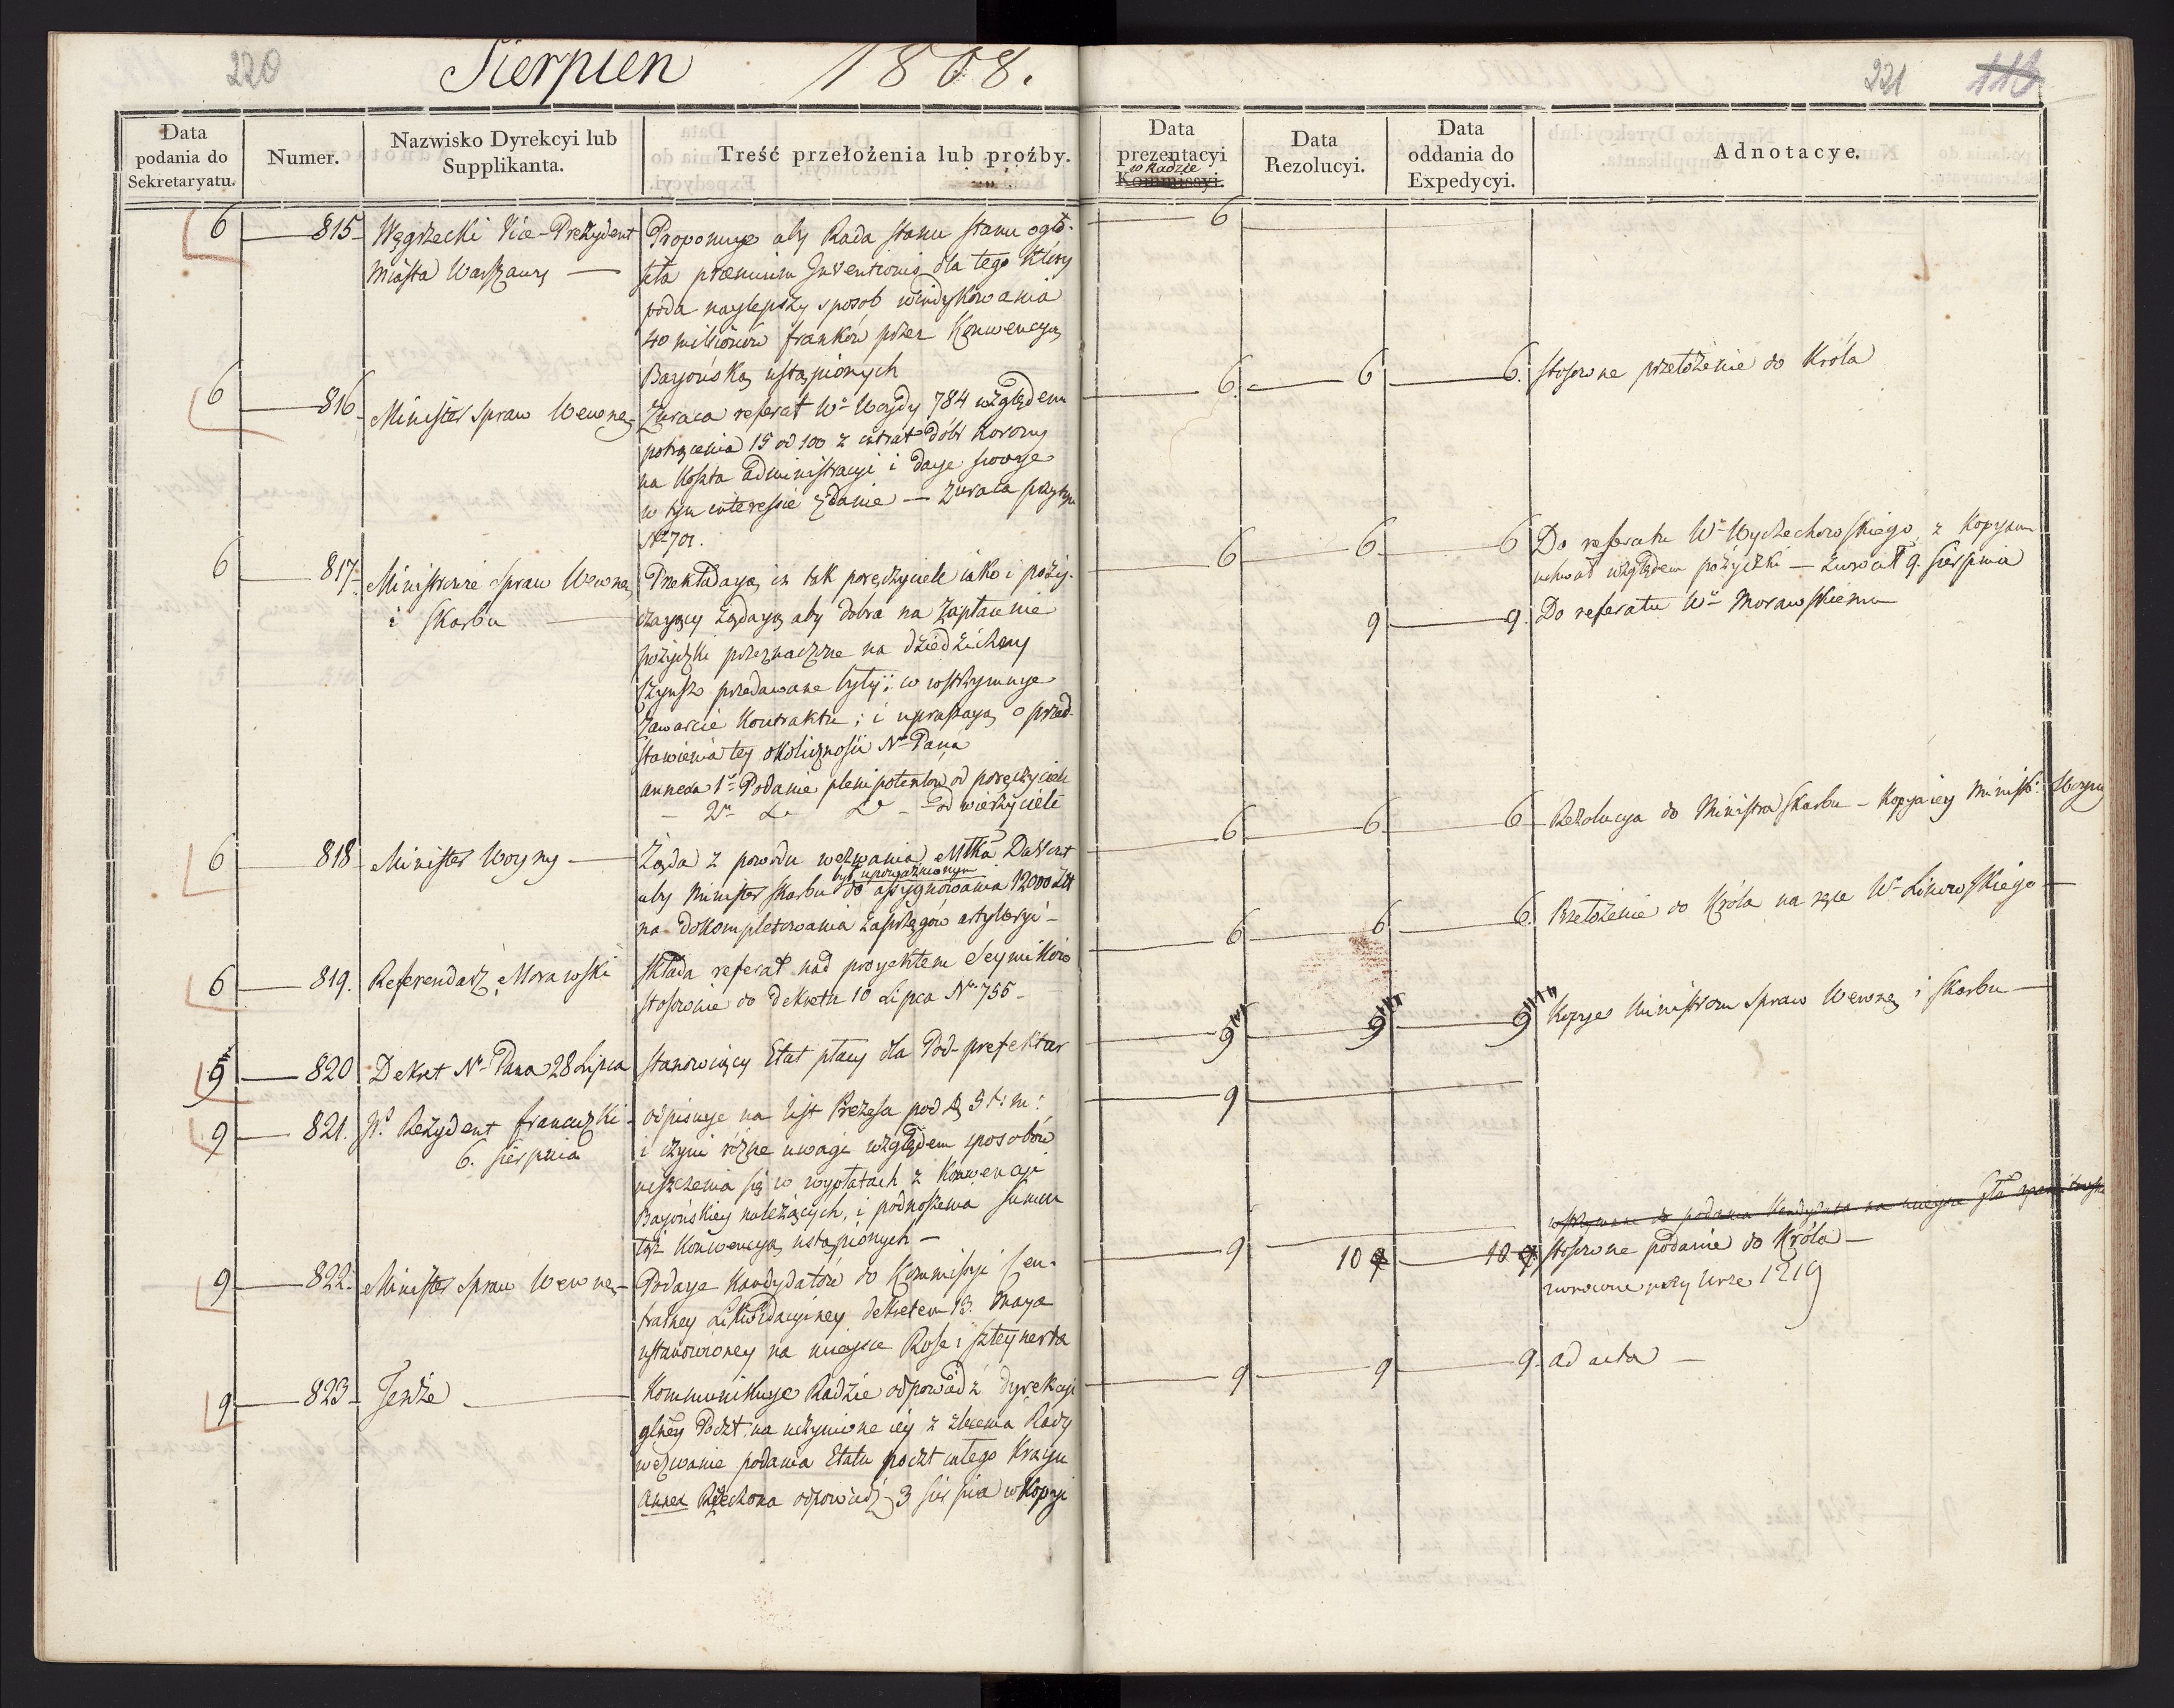 220
Sierpien 1808.
221 113
Data podania do Sekretaryatu.
Numer.
Nazwisko Dyrekcyi lub Supplikanta.
Treść przełożenia lub proźby.
Data prezentacyi w Radzie Kommissyi.
Data Rezolucyi.
Data oddania do Expedycyi.
Adnotacye.
6 815 Węgrzecki Vice-Prezydent
Miasta Warszawy
Proponuje aby Rada stanu stanu ogło-
siła præmium Inventionis dla tego który
poda naylepszy sposob windykowania
40 milionów franków przez Konwencyą
Bayońską ustąpionych
6
6 816 Minister Spraw Wewnę
Zwraca referat Wo Woydy 784 względem
potrącenia 15 od 100 z intrat dóbr Korony
na koszta administracyi i daye swoye
w tym interessie zdanie — zwraca przytym
Nr 701.
6 6 6. stosowne przełożenie do Króla
6 817 Ministrowie Spraw Wewnę
i Skarbu
Przekładayą iż tak poręczyciele iako i poży-
czaiący żądayą aby dobra na zapłacenie
pożyczki przeznaczone na dziedziczny
czynsz przedawane były; wstrzymuye
zawarcie Kontraktu; i upraszayą o przed-
stawienia tey okoliczności No Pana
annexa 1o Podanie plenipotentów od poręczycieli
— 2o do do — od wierzycieli
6 6 6 Do referatu Wo Wyczechowskiego, z kopyam
uchwał względem pożyczki — zwrócił 9. sierpnia
9 9. Do referatu Wo Morawskiemu
6 818 Minister Woyny
Żąda z powodu wezwania Młka Davoust
aby Minister Skarbu był upoważnionym do assygnowania 12000 Złt
na dokompletowania zaprzęgów artyleryi —
6 6 6 Rezolucya do Ministra Skarbu — Kopya iey Minist: Woyny
6 819. Referendarz Morawski
składa referat nad proyektem Seymików
stosownie do dekretu 10 Lipca No 755 —
6 6 6. Przełożenie do Króla na ręce Wo Linowskiego —
9 820 Dekret No Pana 28 Lipca
stanowiący Etat płacy dla Pod-prefektur
9 9 9 Kopye Ministrom Spraw Wewnę i Skarbu —
9 821. Jo Rezydent francuzki
6. sierpnia
odpisuye na list Prezesa pod
i czyni różne uwagi względem sposobów
uiszczenia się w wypłatach z Konwencyi
Bayońskiey należących, i podnoszenia summ
tąż Konwencyą ustąpionych —
9
9 822. Minister Spraw Wewnę
Podaye Kandydatów do Kommissyi Cen-
tralney Likwidacyiney dekretem 13. Maya
ustanowioney na mieysce Rose i Szteynerta
9 10 9 10 9 stosowne podanie do Króla —
zwrócone przy Nrze 1219
9 823 Tenże
Kommunikuye Radzie odpowiedź dyrekcyi
głney Poczt na uczynione iey z zlecenia Rady
wezwanie podania Etatu poczt całego Kraju
Annex Rzeczona odpowiedź 3 sierpnia w Kopyi
9 9 9. ad acta —